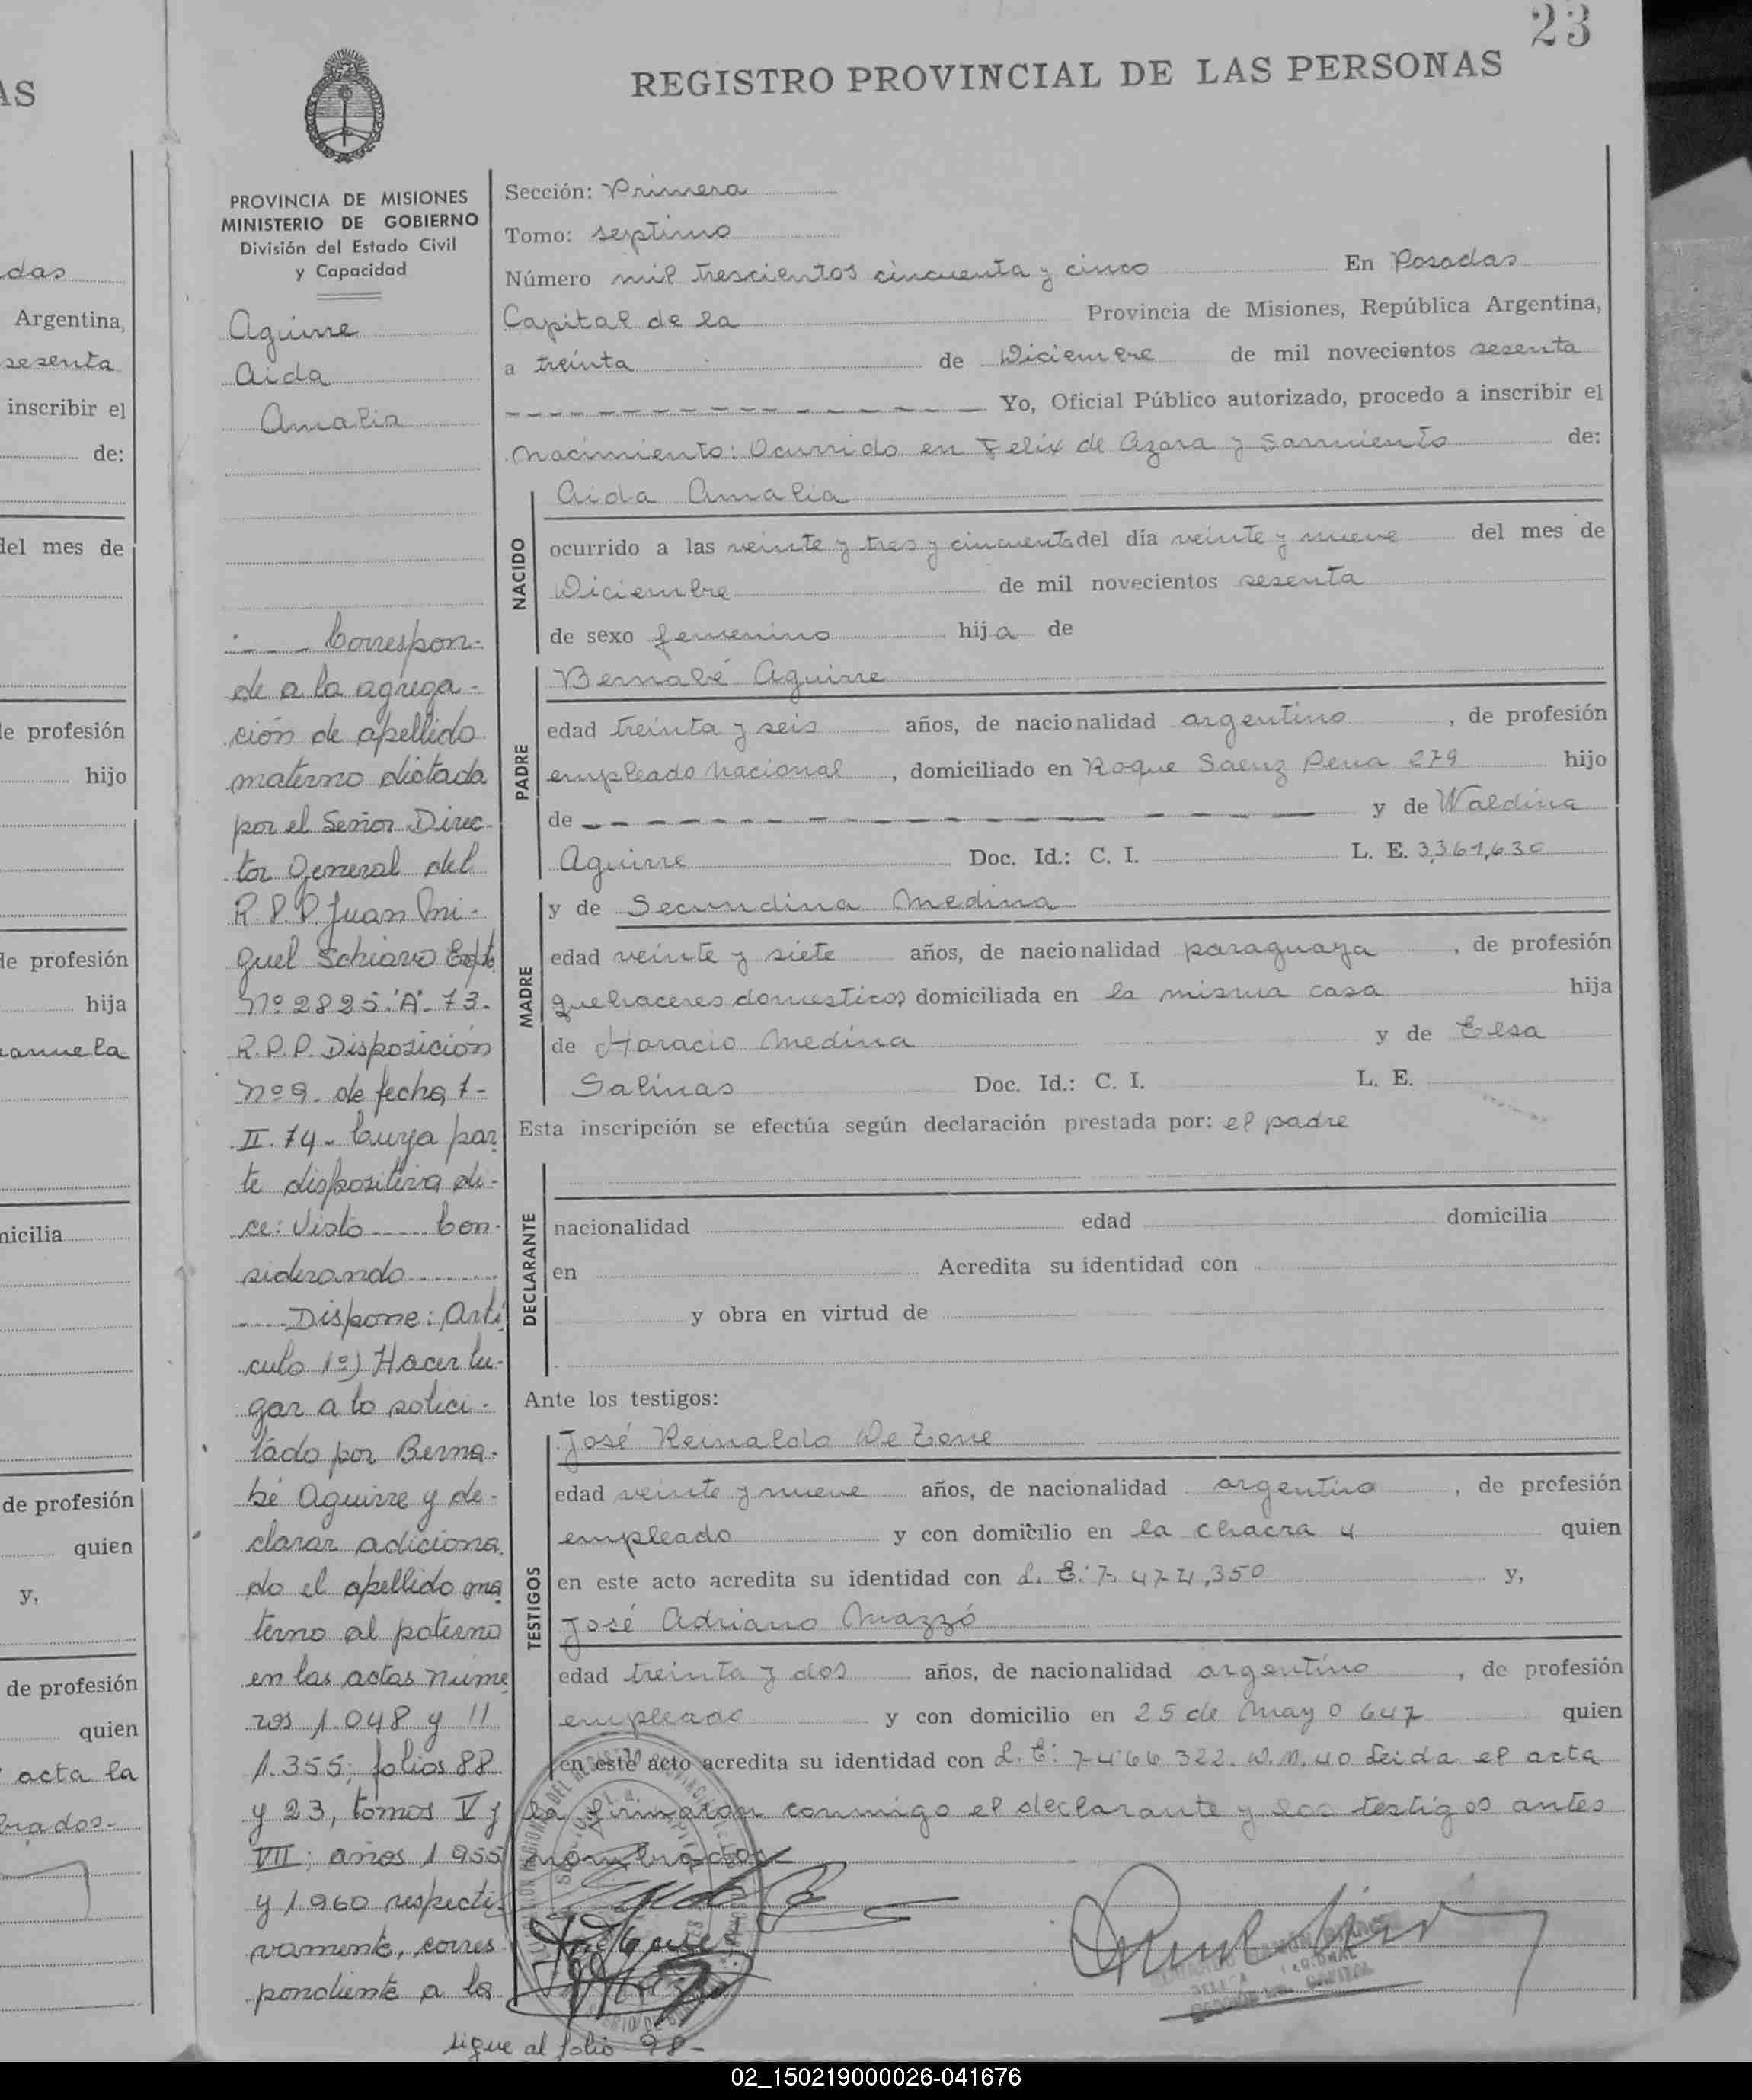 23
REGISTRO PROVINCIAL DE LAS PERSONAS
AS
das
Argentina,
sesenta
inscribir el
de:
del mes de
de profesión
hijo
de profesión
hija
anuela
micilia
de profesión
quien
y,
de profesión
quien
acta la
brados-
PROVINCIA DE MISIONES
MINISTERIO DE GOBIERNO
División del Estado Civil
y Capacidad
Aguirre
Aida
Amalia
Correspon-
de a la agrega-
ción de apellido
materno dictada
por el Señor Direc-
tor General del
R.P.P Juan Mi-
guel Schiavo Expte
Nº 2825-"A"-73-
R.P.P. Disposición
nº 9- de fecha 7-
II-74- Cuya par
te dispositiva di-
ce: Visto ..... Con-
siderando ........
.... Dispone: Artí
culo 1º) Hacer lu-
gar a lo solici-
tado por Berna-
bé Aguirre y de-
clarar adiciona
do el apellido ma
terno al paterno
en las actas núme
ros 1.048 y 11
1.355; folios 88
y 23, tomos V y
VII; años 1955
y 1.960 respecti-
vamente, corres
pondiente a la
sigue al folio 98-
Sección: Primera
Tomo: septimo
Número mil trescientos cincuenta y cinco En Posadas
Capital de la Provincia de Misiones, República Argentina,
a treinta de Diciembre de mil novecientos sesenta
Yo, Oficial Público autorizado, procedo a inscribir el
Nacimiento: Ocurrido en Felix de Azara y Sarmiento de:
NACIDO
Aida Amalia
ocurrido a las veinte y tres y cincuenta del día veinte y nueve del mes de
Diciembre de mil novecientos sesenta
de sexo femenino hija de
PADRE
Bernabé Aguirre
edad treinta y seis años, de nacionalidad argentino, de profesión
empleado Nacional, domiciliado en Roque Saenz Pena 279 hijo
de y de Waldina
Aguirre Doc. Id.: C. I. L. E. 3,361,630
MADRE
y de Secundina Medina
edad veinte y siete años, de nacionalidad paraguaya, de profesión
quehaceres domesticos domiciliada en la misma casa hija
de Horacio Medina y de Elsa
Salinas Doc. Id.: C. I. L. E.
Esta inscripción se efectúa según declaración prestada por: el padre
DECLARANTE
nacionalidad edad domicilia
en Acredita su identidad con
y obra en virtud de
Ante los testigos:
TESTIGOS
José Reinaldo De Zone
edad veinte y nueve años, de nacionalidad argentina, de profesión
empleado y con domicilio en la chacra 4 quien
en este acto acredita su identidad con L. E: 7,474,350 y,
José Adriano Mazzó
edad treinta y dos años, de nacionalidad argentino, de profesión
empleado y con domicilio en 25 de Mayo 647 quien
en este acto acredita su identidad con L. E: 7466322. D.M. 40 Leida el acta
la firmaron conmigo el declarante y los testigos antes
nombrados
02_150219000026-041676